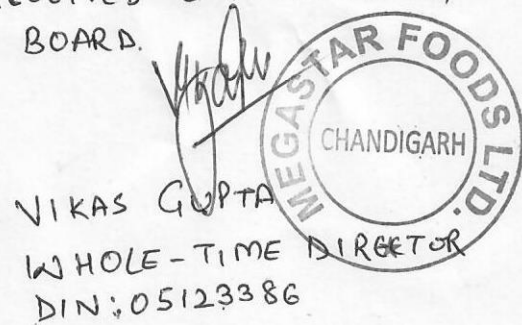 BOARD.
MEGASTAR FOODS LTD.
CHANDIGARH
VIKAS GUPTA
WHOLE-TIME DIRECTOR
DIN: 05123386